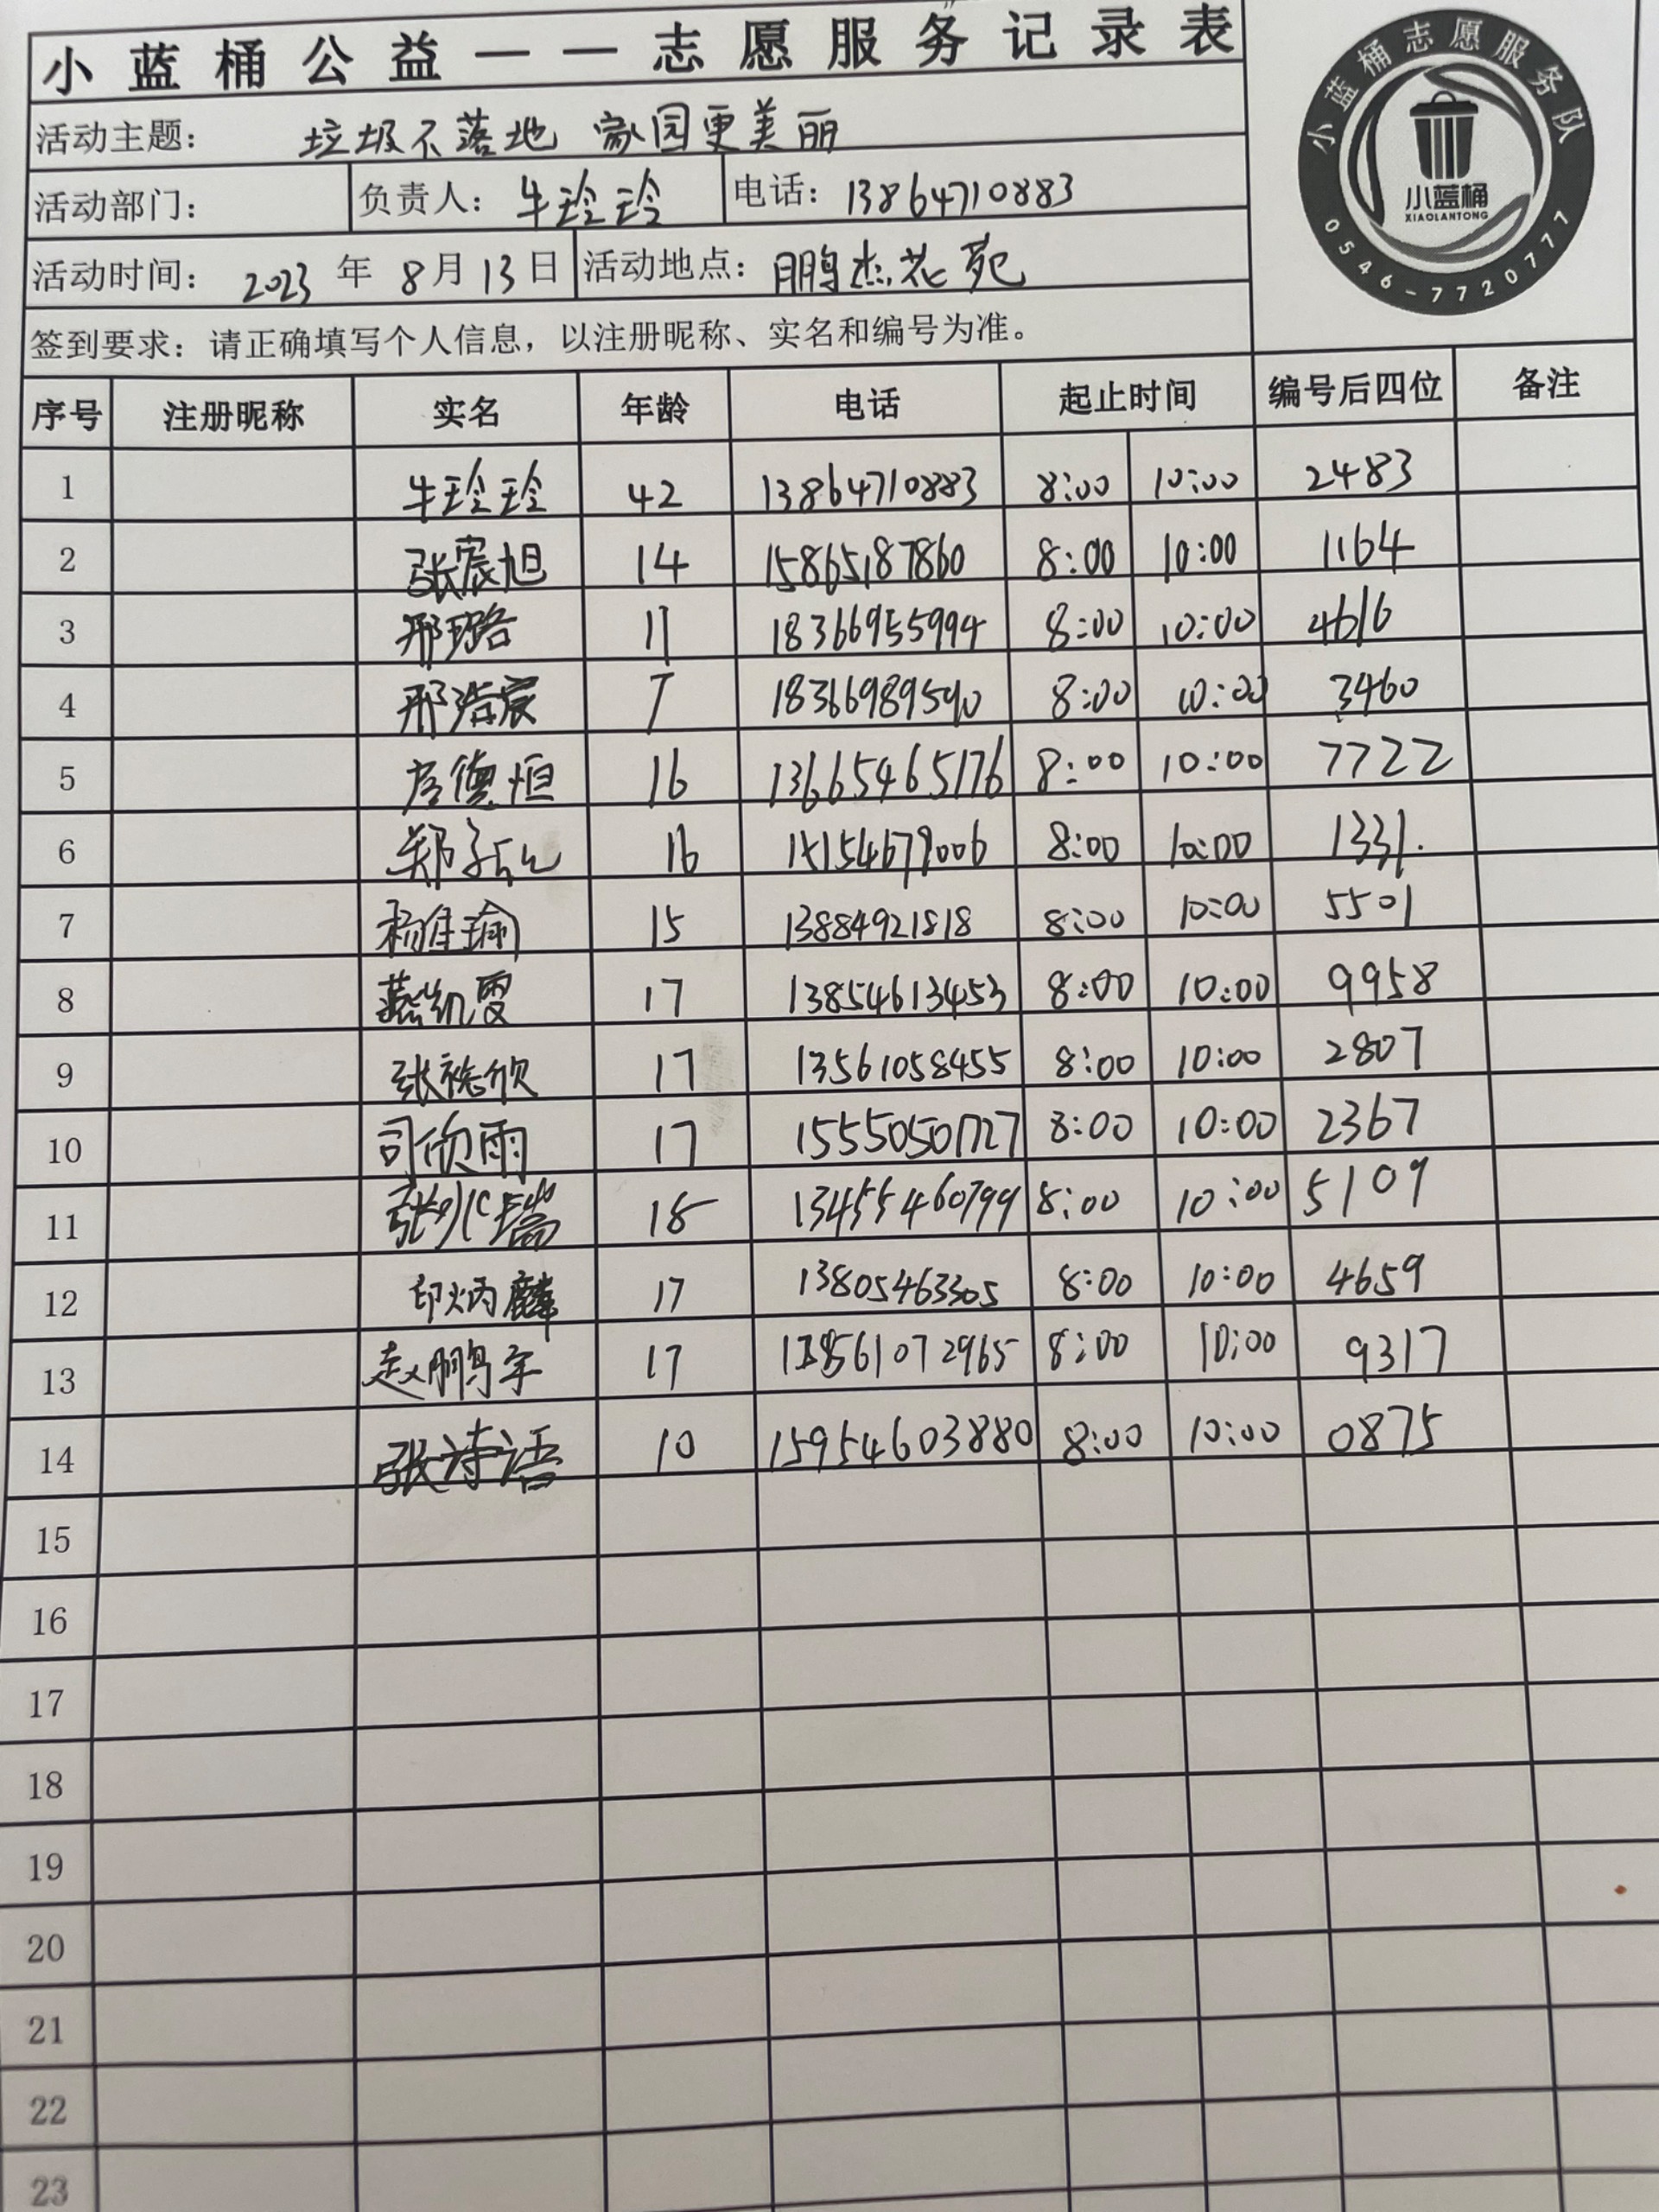 小蓝桶公益——志愿服务记录表
小蓝桶志愿服务队
小蓝桶
XIAOLANTONG
0546-7720777
活动主题： 垃圾不落地 家园更美丽
活动部门： 负责人：牛玲玲 电话：13864710883
活动时间： 2023 年 8 月 13 日 活动地点：鹏杰花苑
签到要求：请正确填写个人信息，以注册昵称、实名和编号为准。
序号 注册昵称 实名 年龄 电话 起止时间 编号后四位 备注
1 牛玲玲 42 13864710883 8:00 10:00 2483
2 张宸旭 14 15865187860 8:00 10:00 1164
3 邢璐 11 18366955994 8:00 10:00 4616
4 邢浩宸 7 18366989590 8:00 10:00 3460
5 德恒 16 13665465176 8:00 10:00 7722
6 郑子 16 8:00 10:00 1331.
7 杨佳瑜 15 13884921818 8:00 10:00 5501
8 燕凯雯 17 13854613453 8:00 10:00 9958
9 张欣 17 13561058455 8:00 10:00 2807
10 司欣雨 17 15550501727 8:00 10:00 2367
11 张瑞 13455460799 8:00 10:00 5109
12 印炳麟 17 13805463305 8:00 10:00 4659
13 赵鹏宇 17 8:00 10:00 9317
14 张诗语 10 15954603880 8:00 10:00 0875
15
16
17
18
19
20
21
22
23